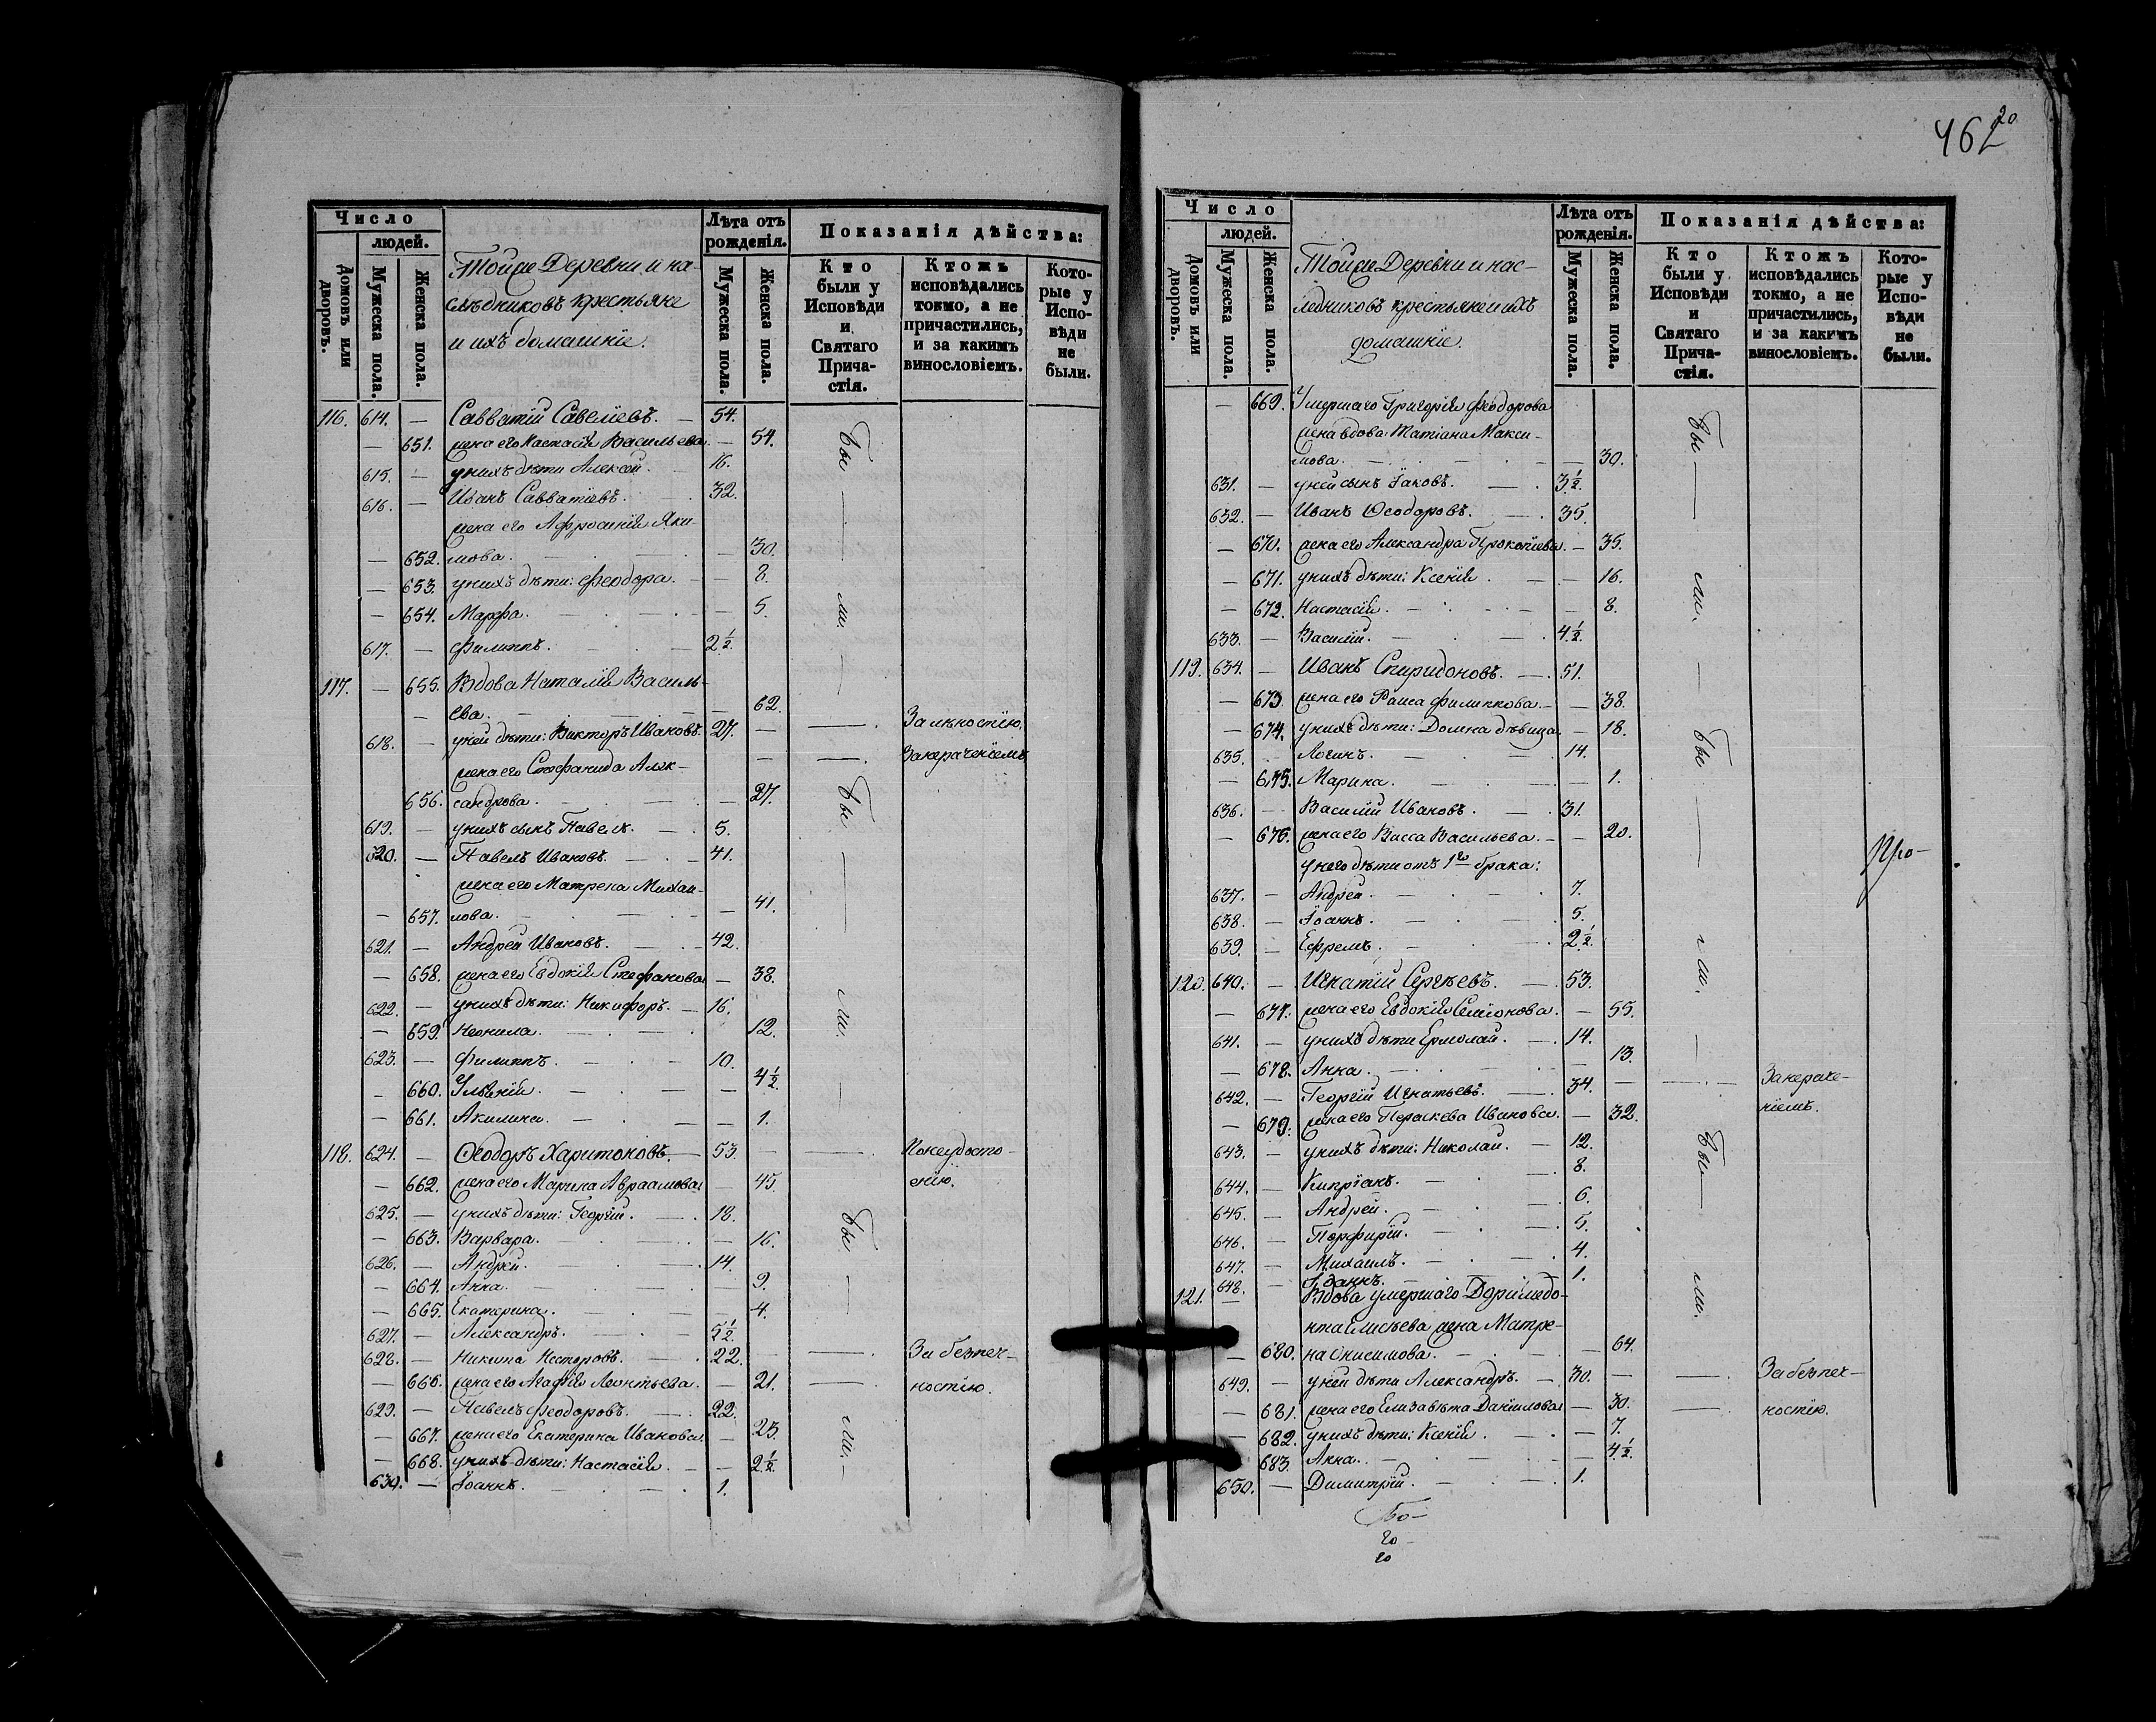 46 20
Число
людей.
Домовъ или дворовъ.
Мужеска пола.
Женска пола.
Тойже Деревни и на-
слѣдниковъ крестьяне
и ихъ домашніе.
Лѣта отъ
рожденія.
Мужеска пола.
Женска пола.
Показанія дѣйства:
Кто
были у
Исповѣди
и
Святаго
Прича-
стія.
Ктожъ
исповѣдались
токмо, а не
причастились,
и за какимъ
винословіемъ.
Кото-
рые у
Испо-
вѣди
не
были.
116. 614. — Савватій Савеліевъ. — 54.
— 651. жена его Настасія Васильева. — 54.
615. — у нихъ дѣти Алексей. 16.
616. — Иванъ Савватіевъ. 32.
жена его Афросинія Яки-
— 652. мова. — 30.
— 653. у нихъ дѣти: Феодора. — 8.
— 654. Марфа. — 5.
617. — Филиппъ. — 2½.
117. — 655. Вдова Наталія Василь-
— ева. — 62.
618. — у ней дѣти: Викторъ Ивановъ. 27. — — За лѣностію.
жена его Стефанида Алек- — — За нераченіемъ
656. сандрова. — 27.
619. — у нихъ сынъ Павелъ. — 5.
620. — Павелъ Ивановъ. — 41.
жена его Матрена Михаи-
— 657. лова. — 41.
621. — Андрей Ивановъ. — 42.
— 658. жена его Евдокія Стефанова — 38.
622. — у нихъ дѣти: Никифоръ. — 16.
— 659. Неонила. 12.
623. — Филиппъ. — 10.
— 660. Ульянія. — 4½.
— 661. Акилина. — 1.
118. 624. — Ѳеодоръ Харитоновъ. — 53. — — По неудосто-
— 662. жена его Марина Авраамова — 45. енію.
625. — у нихъ дѣти: Георгій. — 18.
— 663. Варвара. — 16.
626. — Андрей. — 14.
— 664. Анна. — 9.
— 665. Екатерина. — 4.
627. — Александръ. — 5½.
628. — Никита Несторовъ. 22. — За безпеч-
— 666. жена его Агафія Леонтьева. — 21. — ностію.
629. — Павелъ Феодоровъ. — 22.
— 667. жена его Екатерина Иванова. — 23.
— 668. у нихъ дѣти: Настасія. — 2½.
630. — Іоаннъ. — 1.
бы — ли.
бы — ли.
бы — ли.
Число
людей.
Домовъ или дворовъ.
Мужеска пола.
Женска пола.
Тойже Деревни и нас-
ледниковъ крестьяне и ихъ
домашніе.
Лѣта отъ
рожденія.
Мужеска пола.
Женска пола.
Показанія дѣйства:
Кто
были у
Исповѣди
и
Святаго
Прича-
стія.
Ктожъ
исповѣдались
токмо, а не
причастились,
и за какимъ
винословіемъ.
Кото-
рые у
Испо-
вѣди
не
были.
— 669. Умершаго Григорія Феодорова
жена вдова Татіана Макси-
мова. — 30.
631. — у ней сынъ Іаковъ. — 3½.
632. — Иванъ Ѳеодоровъ. — 35.
— 670. жена его Александра Прокопіева. — 35.
— 671. у нихъ дѣти: Ксенія. — 16.
— 672. Настасія. — 8.
633. — Василій. — 4½.
119. 634. — Иванъ Спиридоновъ. — 51.
— 673. жена его Раиса Филиппова. — 38.
— 674. у нихъ дѣти: Домна дѣвица. — 18.
635. Логинъ. — 14.
— 675. Марина. — 1.
636. — Василій Ивановъ. — 31.
— 676. жена его Васса Васильева. — 20.
у него дѣти отъ 1го брака:
637. — Андрей. — 7.
638. — Іоаннъ. — 5.
639. — Ефремъ. — 2½.
120. 640. — Игнатій Сергѣевъ. — 53.
— 677. жена его Евдокія Семіонова. — 55.
641. — у нихъ дѣти Ермолай. — 14.
— 678. Анна. — 13.
642. — Георгій Игнатьевъ. — 34. — — За нераче-
— 679. жена его Пераскева Иванова. — 32. ніемъ.
643. — у нихъ дѣти: Николай. — 12.
644. — Кипріанъ. — 8.
645. — Андрей. — 6.
646. — Порфирій. — 5.
647. — Михаилъ. — 4.
648. — Іоаннъ. — 1.
121. — Вдова умершаго Доримедо-
нта жена Матре-
— 680. на Онисимова. — 64.
649. — у ней дѣти Александръ. — 30. — — За безпеч-
— 681. жена его Елизавѣта Даніилова — 30. — ностію.
— 682. у нихъ дѣти: Ксенія. — 7.
— 683. Анна. — 4½.
650. — Димитрій. — 1.
бы — ли.
бы — ли.
бы — ли.